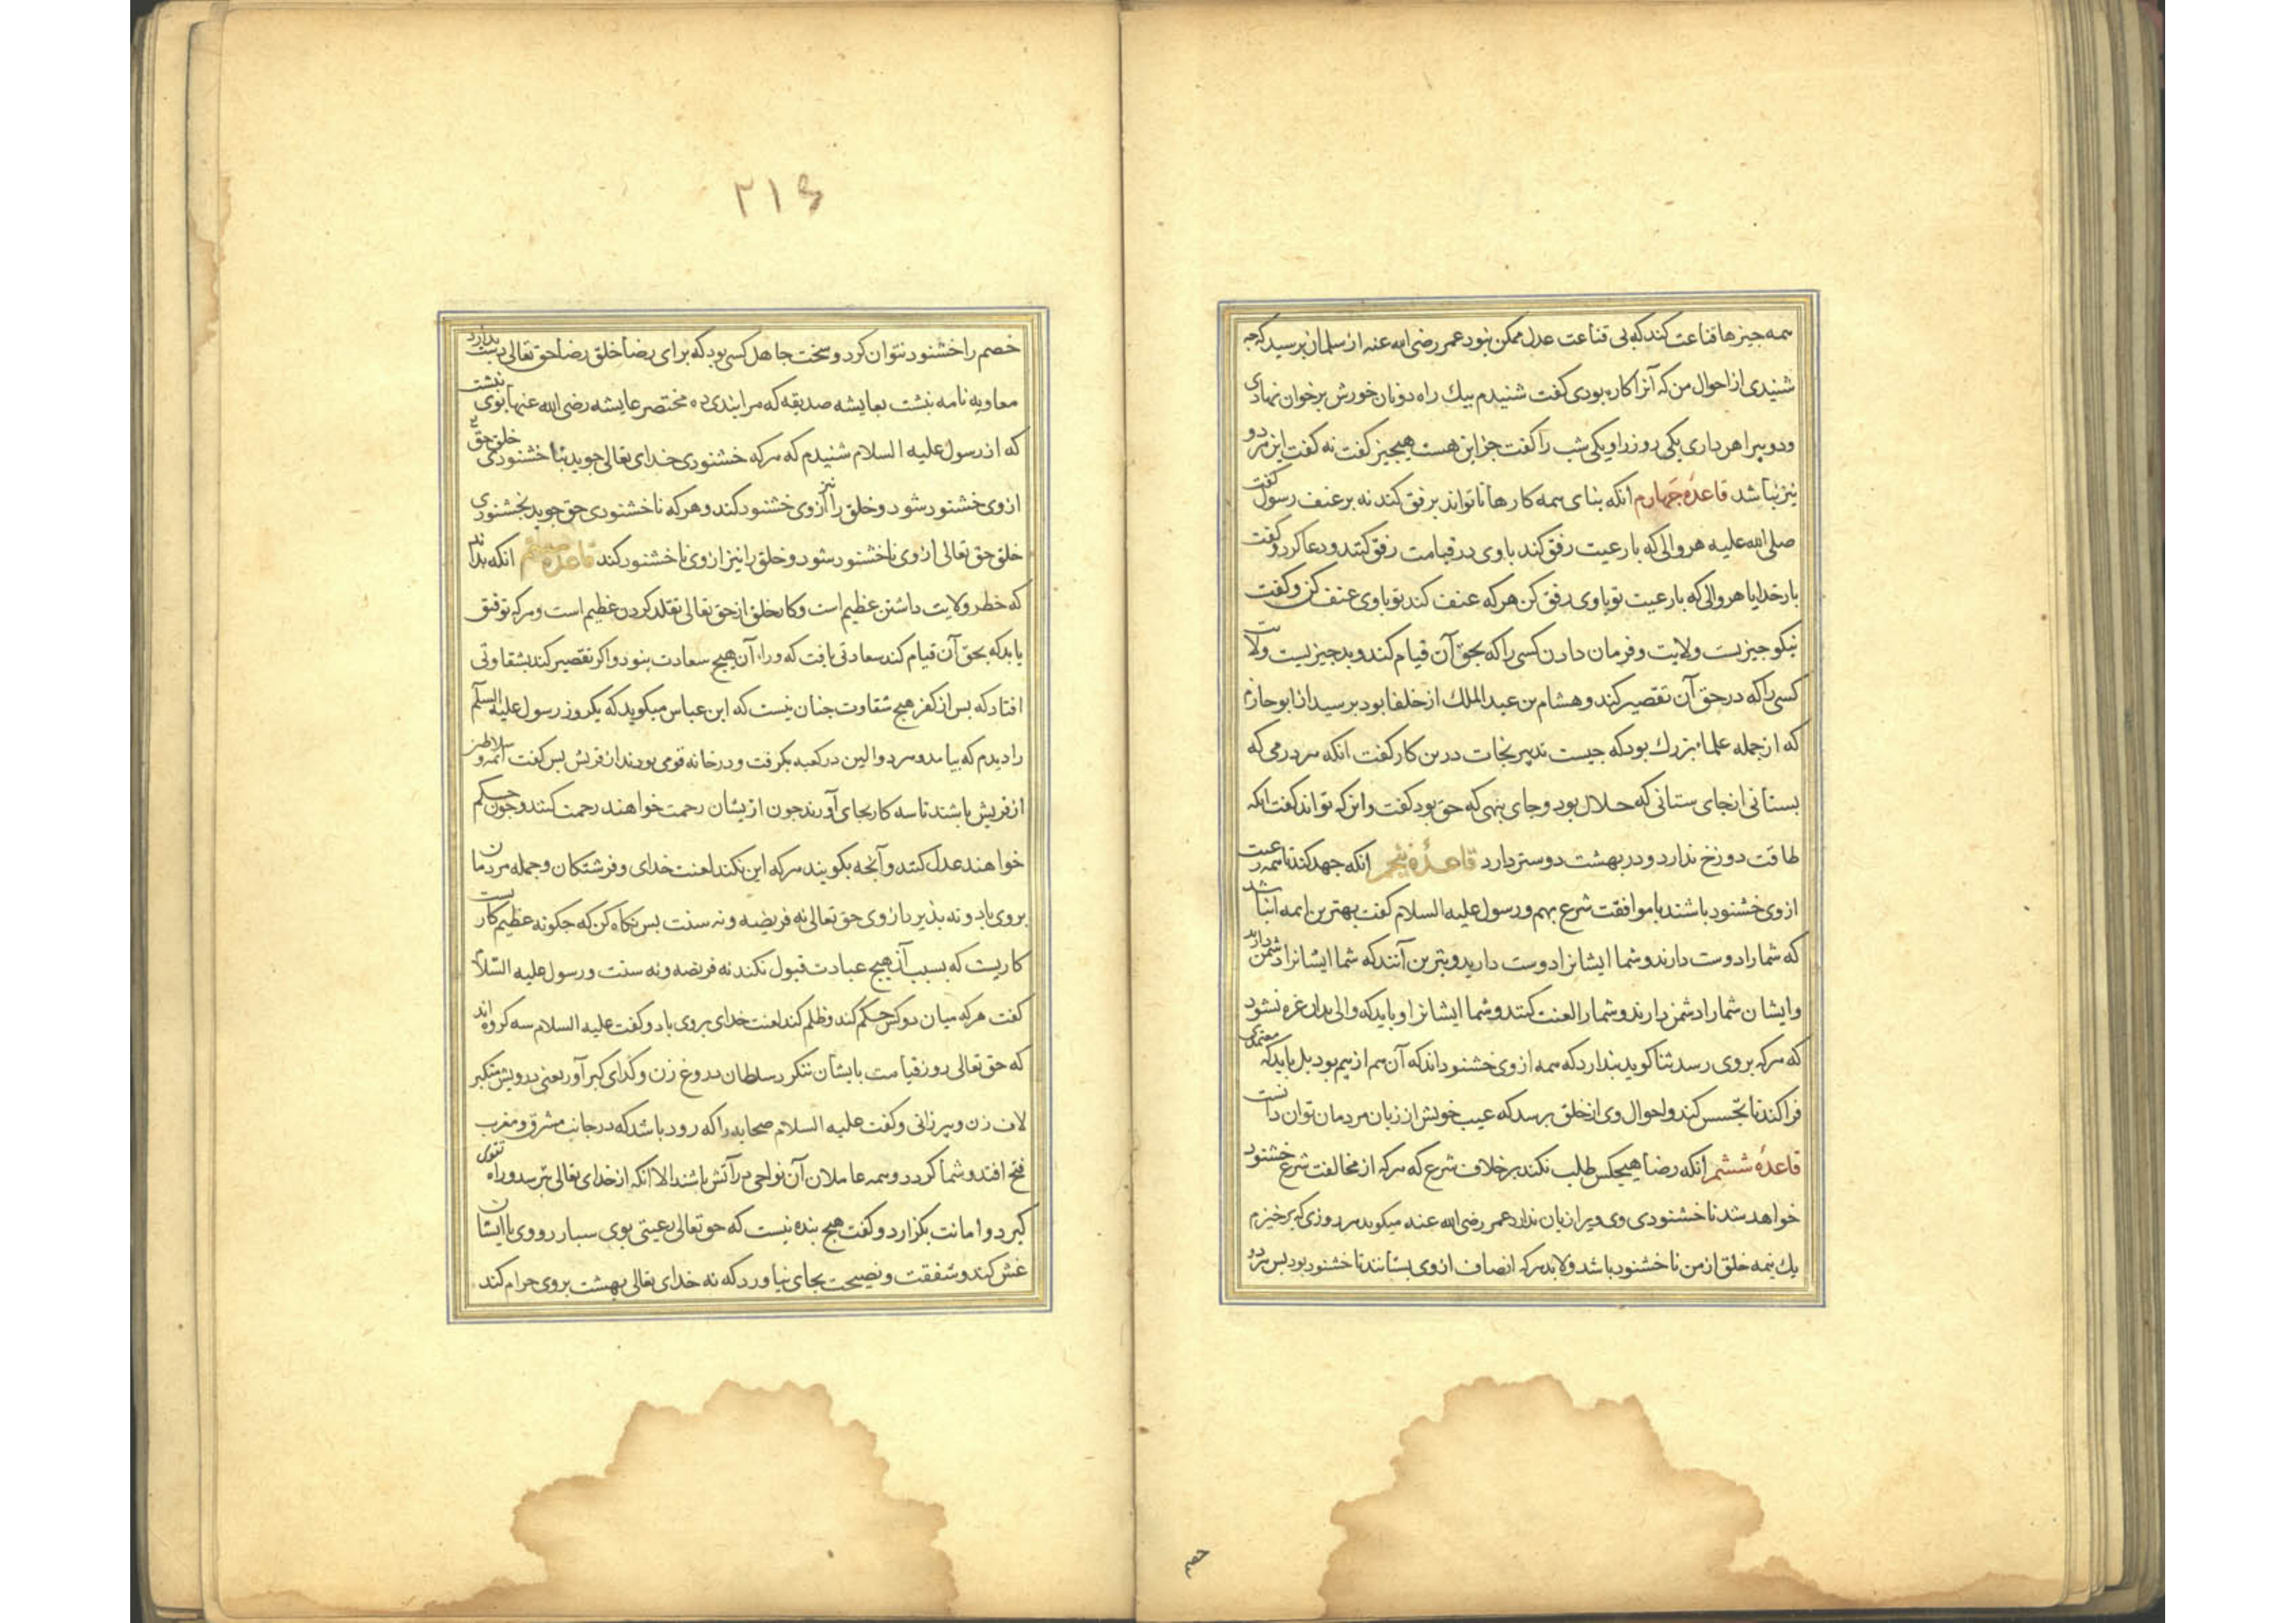 همه چیزها قناعت کند که بی قناعت عدل ممکن نبود عمر رضی الله عنه از سلمان پرسید که چه
شنیدی از احوال من که آنرا کاره بودی کفت شنیدم بیك راه دو نان خورش برخوان نهادی
ودو پیراهن داری یکی روز را و یکی شب را کفت جز این هست هیچ چیز کفت نه کفت این هر دو
نیز نباشد قاعدهٔ چهارم انکه بنای همه کارها تا تواند بر رفق کند نه بر عنف رسول کفت
صلی الله علیه هر والی که با رعیت رفق کند با وی در قیامت رفق کنند و دعا کرد و کفت
بار خدایا هر والی که با رعیت تو با وی رفق کن هر که عنف کند تو با وی عنف کن و کفت
نیکو چیزیست ولایت و فرمان دادن کسی را که بحق آن قیام کند و بد چیزیست ولایت
کسی را که در حق آن تقصیر کند و هشام بن عبد الملك از خلفا بود پرسید از ابو حازم
که از جمله علماء بزرك بود که چیست تدبیر نجات درین کار کفت انکه هر درمی که
بستانی از جای ستانی که حلال بود و جای بنهی که حق بود کفت و این که تواند کفت انکه
طاقت دوزخ ندارد و در بهشت دوستر دارد قاعدهٔ پنجم انکه جهد کند تا همه رعیت
از وی خشنود باشند با موافقت شرع بهم و رسول علیه السلام کفت بهترین ایمه انباشد
که شما را دوست دارند و شما ایشانرا دوست دارید و بترین آنند که شما ایشانرا دشمن دارند
و ایشان شما را دشمن دارند و شما را لعنت کنند و شما ایشانرا و باید که والی بدان غره نشود
که هر که بروی رسد ثنا کوید پندارد که همه از وی خشنود اند که آن هم از بیم بود بل باید که معتمدی
فرا کند تا تجسس کند و احوال وی از خلق پرسد که عیب خویش از زبان مردمان توان دانست
قاعدهٔ ششم انکه رضا هیچکس طلب نکند بر خلاف شرع که هر که از مخالفت شرع خشنود
خواهد شد ناخشنودی وی ویرا زیان ندارد عمر رضی الله عنه میکوید هر روزی که برخیزم
یك نیمه خلق از من ناخشنود باشد و لابد هر که انصاف از وی بستانند ناخشنود بود پس هر دو
خصم
۲۱۶
خصم را خشنود نتوان کرد و سخت جاهل کسی بود که برای رضا خلق رضا حق تعالی دست بدارد
معاویه نامه نبشت بعایشه صدیقه که مرا پندی ده مختصر عایشه رضی الله عنها بوی نبشت
که از رسول علیه السلام شنیدم که هر که خشنودی خدای تعالی جوید بناخشنودی خلق حق
از وی خشنود شود و خلق را نیز از وی خشنود کند و هر که ناخشنودی حق جوید بخشنودی
خلق حق تعالی از وی ناخشنود شود و خلق را نیز از وی ناخشنود کند قاعدهٔ هفتم انکه بداند
که خطر ولایت داشتن عظیم است و کار خلق از حق تعالی تقلد کردن عظیم است و هر که توفیق
یابد که بحق آن قیام کند سعادتی یافت که وراء آن هیچ سعادت نبود و اکر تقصیر کند بشقاوتی
افتاد که پس از کفر هیچ شقاوت چنان نیست که ابن عباس میکوید که یکروز رسول علیه السلم
را دیدم که بیامد و در کعبه بکرفت و در خانه قومی بودند از قریش پس کفت ائمه و سلاطین
از قریش باشند تا سه کار بجای آورند چون ازیشان رحمت خواهند رحمت کنند و چون حکم
خواهند عدل کنند و آنچه بکویند هر که این نکند لعنت خدای و فرشتکان و جمله مردمان
بروی باد و نه پذیرد از وی حق تعالی نه فریضه و نه سنت پس نکاه کن که چکونه عظیم کار
کاریست که بسبب آن هیچ عبادت قبول نکند نه فریضه و نه سنت و رسول علیه السلام
کفت هر که میان دو کس حکم کند و ظلم کند لعنت خدای بروی باد و کفت علیه السلام سه کروه اند
که حق تعالی روز قیامت بایشان ننکرد سلطان دروغ زن و کدای کبر آور یعنی درویش متکبر
لاف زن و پیر زانی و کفت علیه السلام صحابه را که زود باشد که در جانب مشرق و مغرب
فتح افتد و شما کردد و همه عاملان آن نواحی در آتش باشند الا انکه از خدای تعالی بترسد و راه تقوی
کیرد و امانت بکزارد و کفت هیچ بنده نیست که حق تعالی رعیتی بوی سپارد و وی با ایشان
غش کند و شفقت و نصیحت بجای نیاورد که نه خدای تعالی بهشت بروی حرام کند